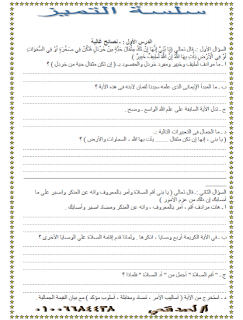 سلسلة التميز
الدرس الأول : - نصائح غالية
السؤال الأول :- قال تعالى ( يَا بُنَيَّ إِنَّهَا إِن تَكُ مِثْقَالَ حَبَّةٍ مِّنْ خَرْدَلٍ فَتَكُن فِي صَخْرَةٍ أَوْ فِي السَّمَاوَاتِ
أَوْ فِي الْأَرْضِ يَأْتِ بِهَا اللَّهُ إِنَّ اللَّهَ لَطِيفٌ خَبِيرٌ )
أ - ما مرادف لطيف وخبير ومفرد خردل والمقصود بـ ( إن تكن مثقال حبة من خردل ) ؟
ب - ما المبدأ الإيماني الذى علمه سيدنا لقمان لابنه فى هذه الآية ؟
ج - تدل الآية السابقة على علم الله الواسع ، وضح .
د - ما الجمال فى التعبيرات التالية ؟
( يا بنى ، إنها إن تكن مثقال ........ يأت بها الله ، السماوات والأرض ) ؟
السؤال الثانى :- قال تعالى ( يا بنى أقم الصلاة وأمر بالمعروف وانه عن المنكر واصبر على ما
أصابك إن ذلك من عزم الأمور )
أ - هات مرادف أقم ، أمر بالمعروف ، وانه عن المنكر ومضاد اصبر وأصابك
ب - فى الآية الكريمة أربع وصايا ، اذكرها . ولماذا قدم إقامة الصلاة على الوصايا الأخرى ؟
ج - " أقم الصلاة " أجمل من " أد الصلاة " فلماذا ؟
د - استخرج من الآية ( أساليب الأمر ، تضاد ومقابلة ، أسلوب مؤكد ) مع بيان القيمة الجمالية